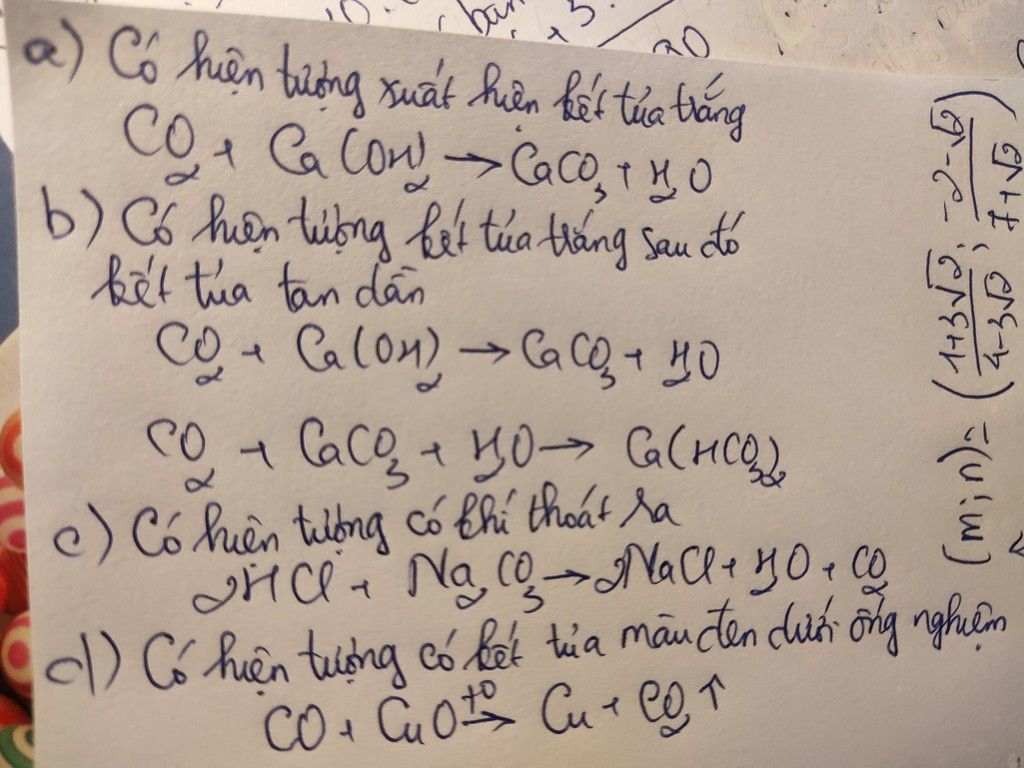 a) Có hiện tượng xuất hiện kết tủa trắng
CO₂ + Ca(OH)₂ → CaCO₃ + H₂O
b) Có hiện tượng kết tủa trắng sau đó
kết tủa tan dần
CO₂ + Ca(OH)₂ → CaCO₃ + H₂O
CO₂ + CaCO₃ + H₂O → Ca(HCO₃)₂
c) Có hiện tượng có khí thoát ra
2HCl + Na₂CO₃ → 2NaCl + H₂O + CO₂
d) Có hiện tượng có kết tủa màu đen dưới ống nghiệm
CO + CuO →(t°) Cu + CO₂↑
(m; n) = ((1+3√2)/(4-3√2); (-2-√2)/(7+√2))